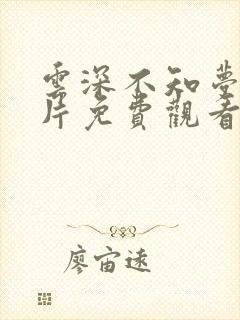 雲深不知夢
片免費觀看
廖宙遠